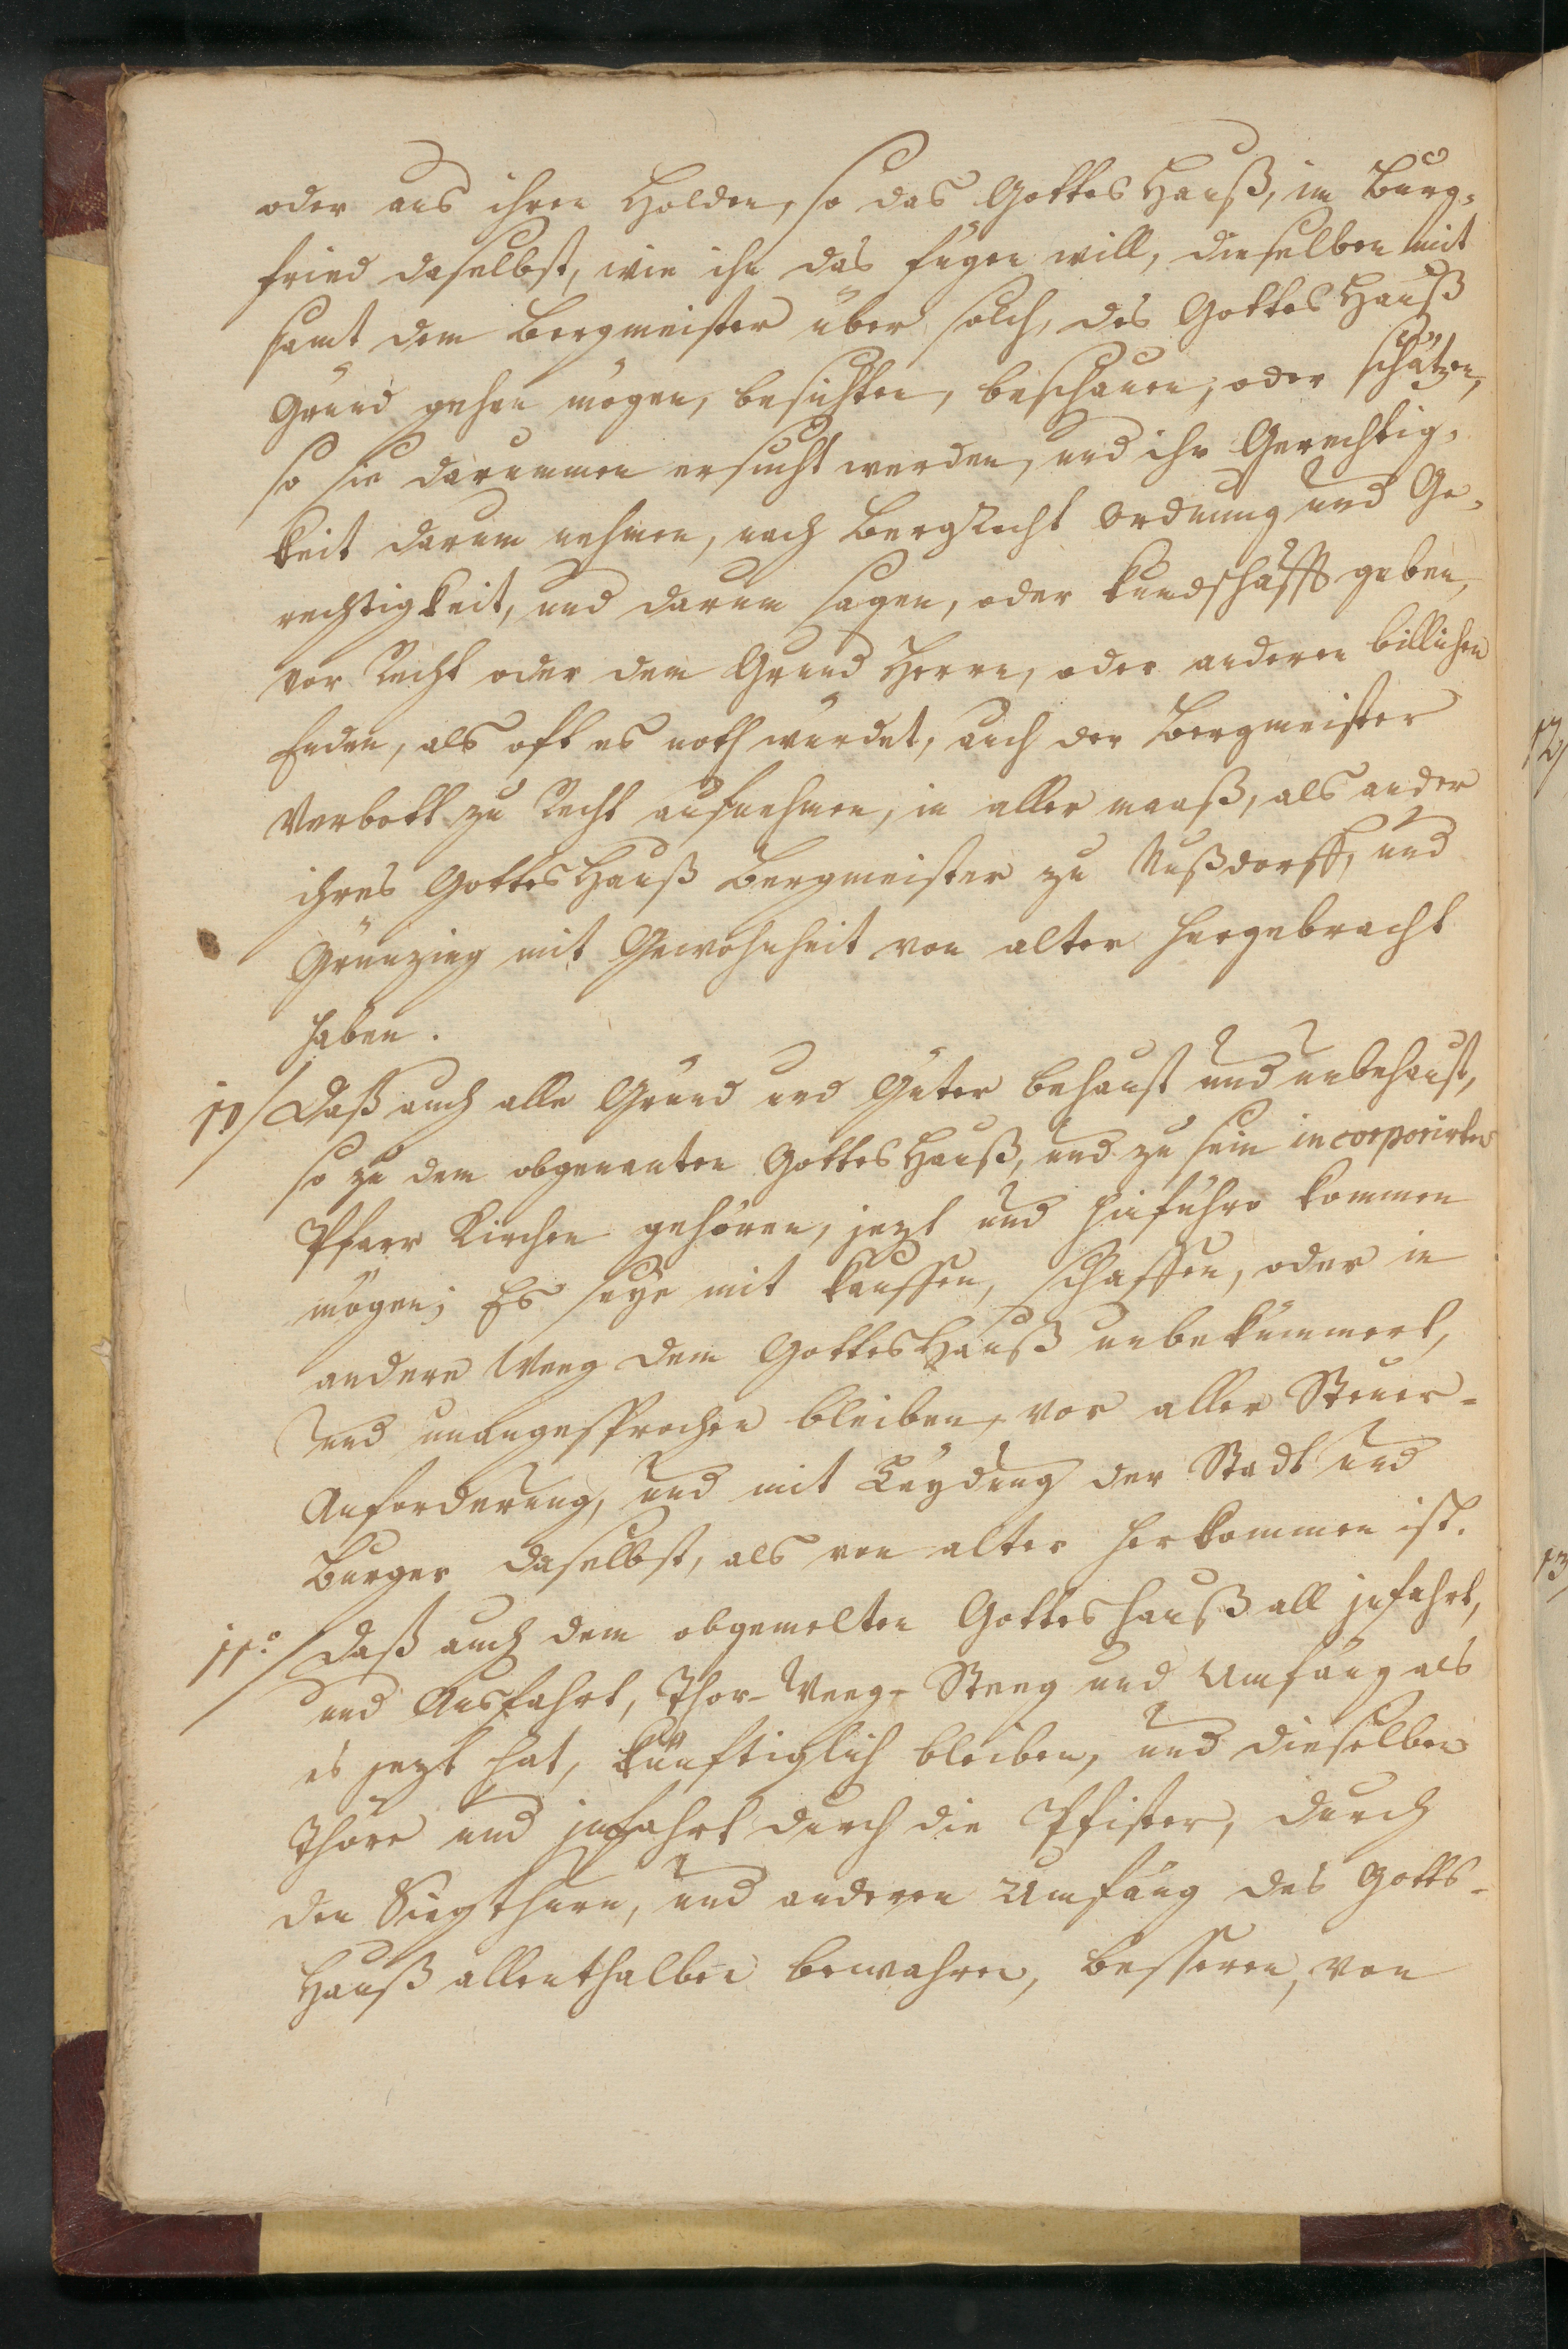 oder aus ihren Holden, so das Gottes Hauß, im Burg-
fried daselbst, wie ihn das fügen will, dieselben mit
samt dem Bergmeister über solch, des Gottes Hauß
Gründ gehen mögen, besichten, beschauen, oder schätzen,
so sie darummen ersucht werden, und ihr Gerechtig-
keit darum nehmen, nach BergRecht Ordnung und Ge-
rechtigkeit, und darum sagen, oder kundschafft geben,
vor Recht oder dem Grund Herrn, oder anderen billichen
Enden, als oft es noth würdet, auch der Bergmeister
Verbott zu Recht aufnehmen, in aller maaß, als ander
ihres Gottes Hauß Bergmeister zu Nußdorff, und
Grünzing mit Gewohnheit von alter hergebracht
haben.
10/ Daß auch alle Gründ und Güter behaust und unbehaust,
so zu dem obgenanten Gottes Hauß, und zu sein incorporirten
Pfarr Kirchen gehören, jezt und hinführo kommen
mögen; Es seye mit kauffen, schaffen, oder in
andere Weeg dem Gottes Hauß unbekümmert,
und unangesprochen bleiben, vor aller Steuer-
Anforderung, und mit Leydung der Stadt und
Burger daselbst, als von alter herkommen ist.
11.o/ Daß auch dem obgemelten Gottes hauß all jnfahrt,
und Ausfahrt, Thor- Weeg- Steeg und Umfäng als
es jezt hat, künftiglich bleiben, und dieselben
Thöre und jnfahrt durch die Pfister, durch
den Ziegthurn, und anderen Umfäng des Gotts-
Hauß allenthalben bewahren, besseren, von
12/
13